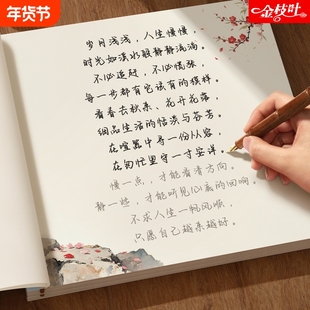 年货节
金枝叶
岁月浅浅，人生慢慢，
时光如溪水般静静流淌。
不必追赶，不必慌张，
每一步都有它该有的模样。
看春去秋来，花开花落，
细品生活的恬淡与芬芳。
在喧嚣中寻一份从容，
在匆忙里守一寸安详。
慢一点，才能看清方向。
静一些，才能听见心底的回响。
不求人生一帆风顺，
只愿自己越来越好。